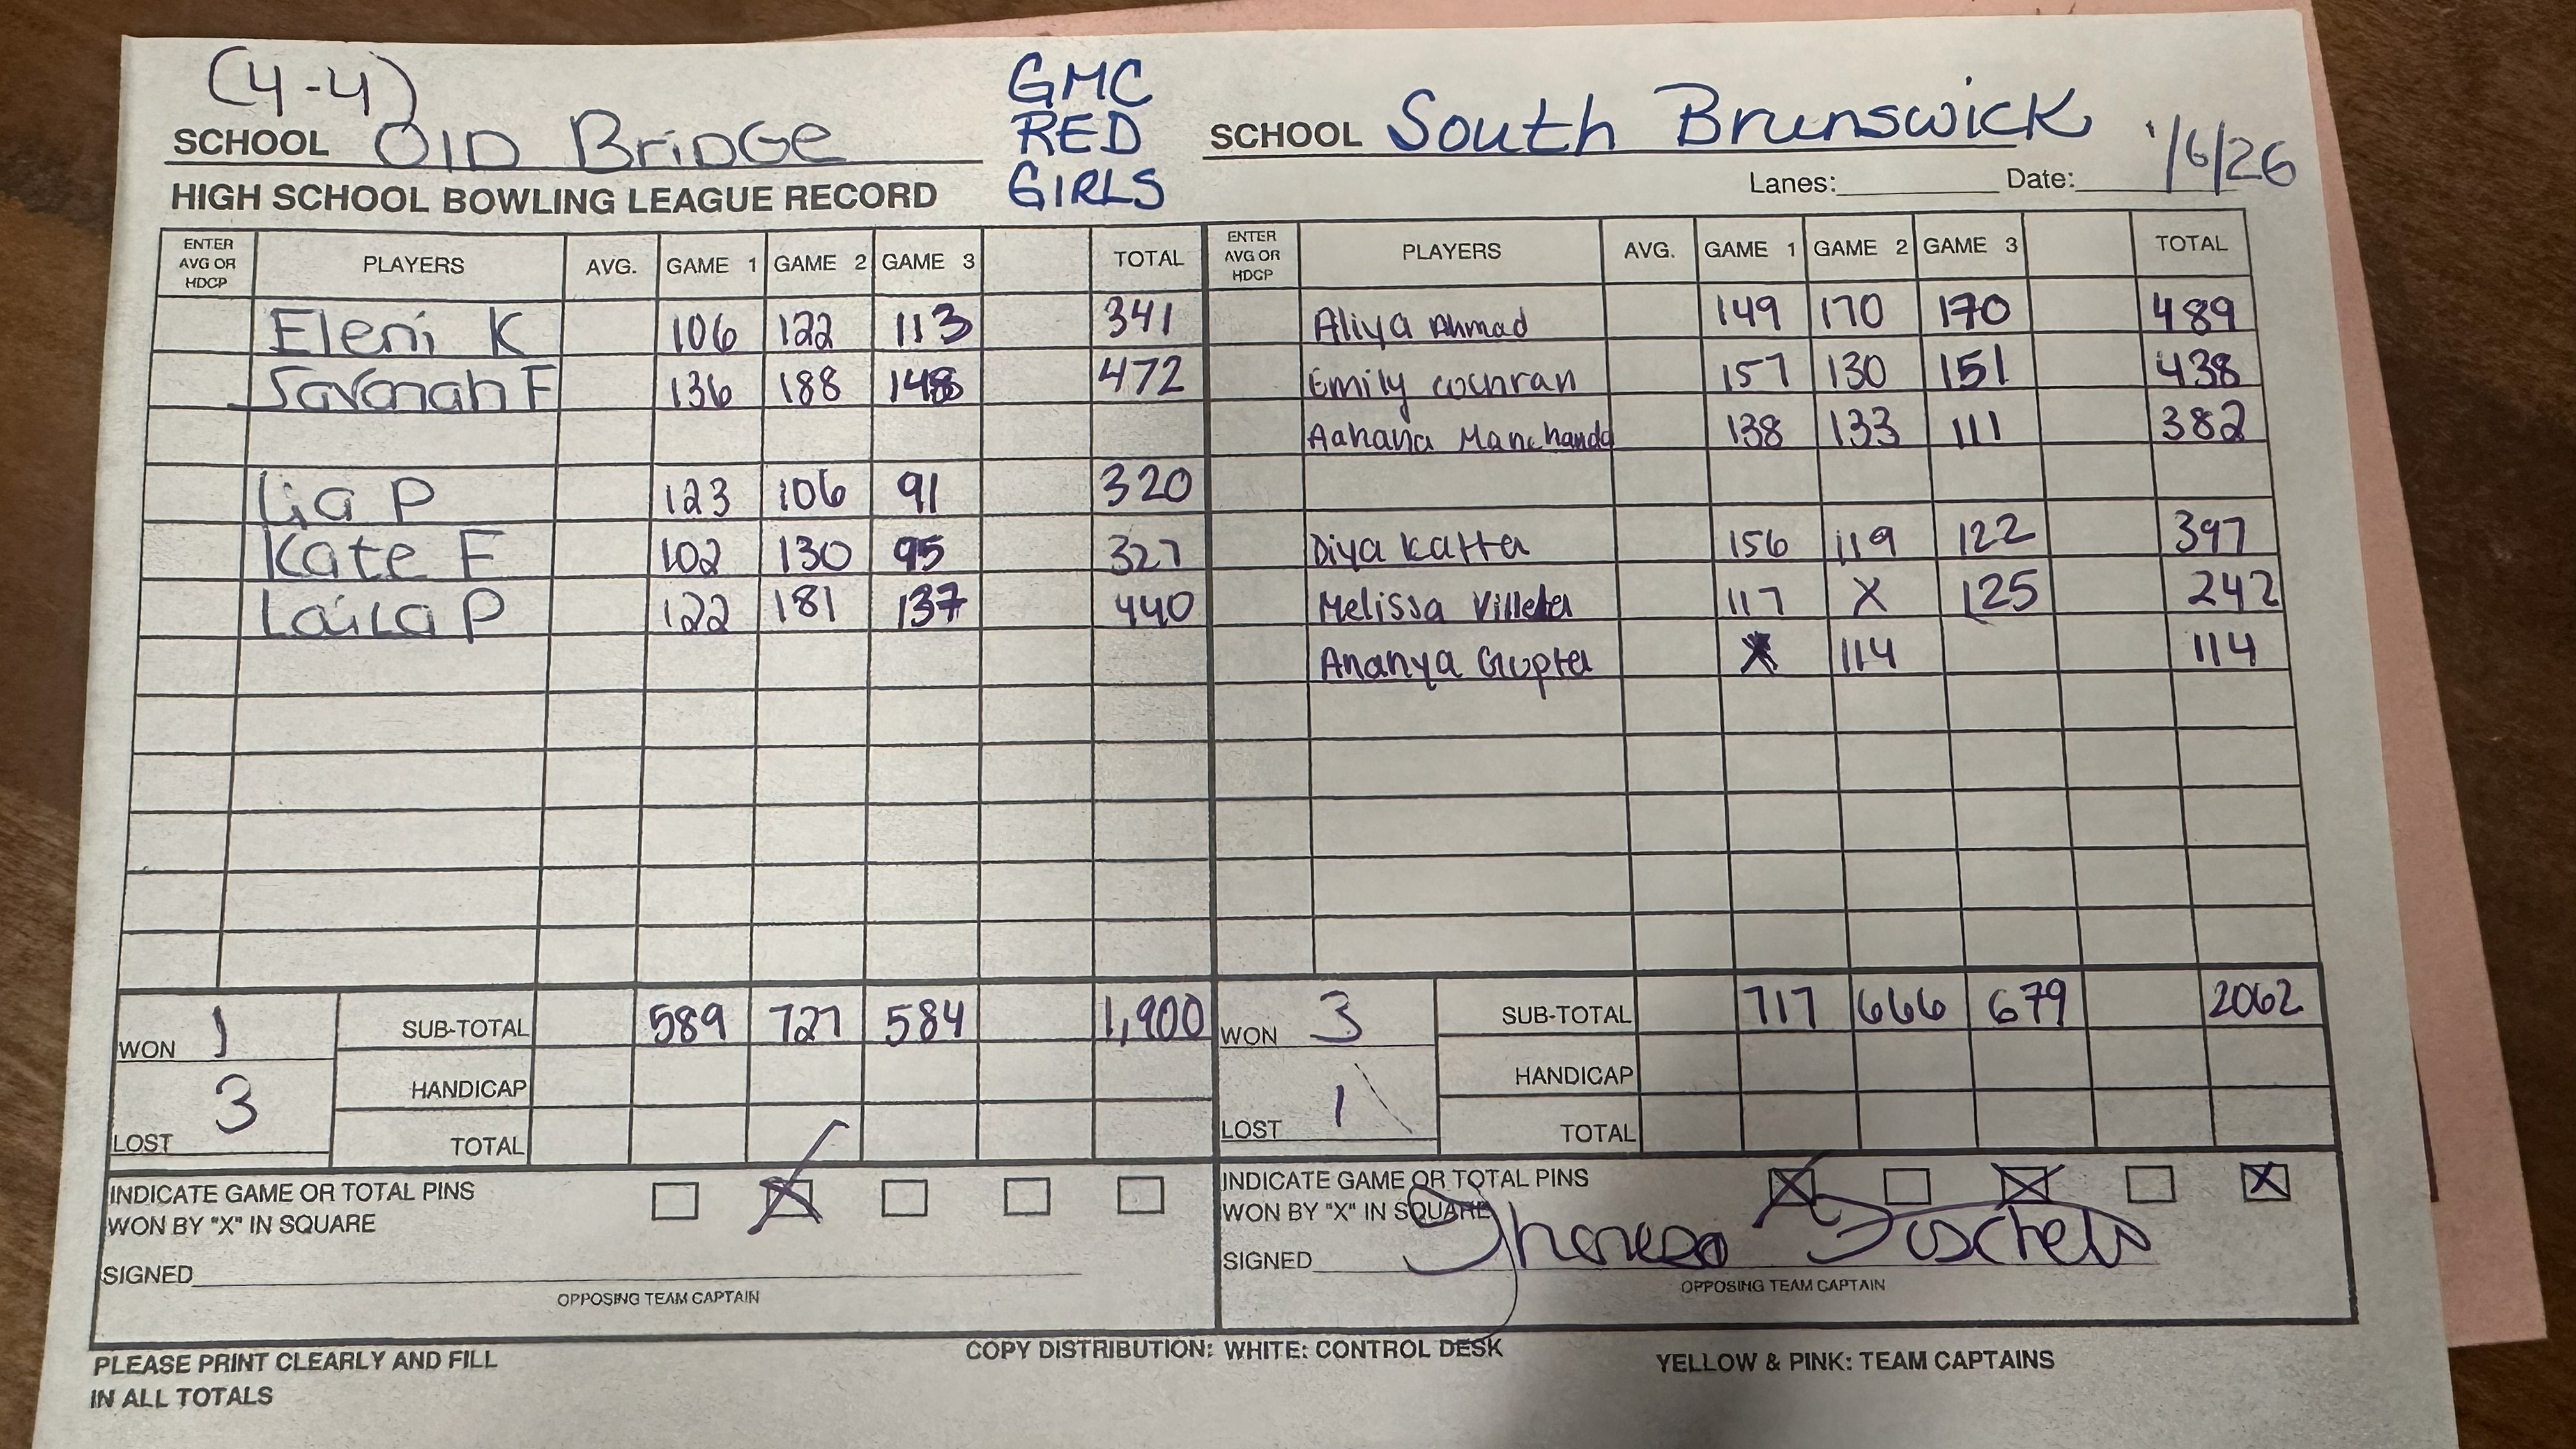 (4-4)
GMC
RED
GIRLS
SCHOOL Old Bridge
SCHOOL South Brunswick
1/6/26
HIGH SCHOOL BOWLING LEAGUE RECORD
Lanes: Date:
ENTER AVG OR HDCP PLAYERS AVG. GAME 1 GAME 2 GAME 3 TOTAL ENTER AVG OR HDCP PLAYERS AVG. GAME 1 GAME 2 GAME 3 TOTAL
Eleni K 106 122 113 341 Aliya Ahmad 149 170 170 489
Savanah F 136 188 148 472 Emily Cochran 157 130 151 438
Aahana Manchanda 138 133 111 382
Lia P 123 106 91 320
Kate F 102 130 95 327 Diya Katta 156 119 122 397
Laila P 122 181 137 440 Melissa 117 X 125 242
Ananya Gupta X 114 114
WON 1 SUB-TOTAL 589 727 584 1,900 WON 3 SUB-TOTAL 717 666 679 2062
HANDICAP HANDICAP
LOST 3 TOTAL LOST 1 TOTAL
INDICATE GAME OR TOTAL PINS
WON BY "X" IN SQUARE X
INDICATE GAME OR TOTAL PINS
WON BY "X" IN SQUARE X X X
SIGNED
SIGNED
OPPOSING TEAM CAPTAIN
OPPOSING TEAM CAPTAIN
PLEASE PRINT CLEARLY AND FILL
IN ALL TOTALS
COPY DISTRIBUTION: WHITE: CONTROL DESK
YELLOW & PINK: TEAM CAPTAINS